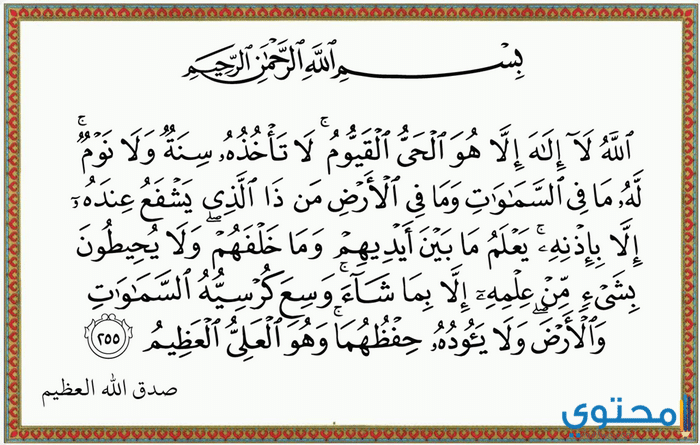 بِسْمِ اللَّهِ الرَّحْمَٰنِ الرَّحِيمِ
اللَّهُ لَآ إِلَٰهَ إِلَّا هُوَ الْحَيُّ الْقَيُّومُ ۚ لَا تَأْخُذُهُۥ سِنَةٌ وَلَا نَوْمٌ ۚ
لَّهُۥ مَا فِي السَّمَٰوَٰتِ وَمَا فِي الْأَرْضِ مَن ذَا الَّذِي يَشْفَعُ عِندَهُۥٓ
إِلَّا بِإِذْنِهِۦ ۚ يَعْلَمُ مَا بَيْنَ أَيْدِيهِمْ وَمَا خَلْفَهُمْ ۖ وَلَا يُحِيطُونَ
بِشَيْءٍ مِّنْ عِلْمِهِۦٓ إِلَّا بِمَا شَآءَ ۚ وَسِعَ كُرْسِيُّهُ السَّمَٰوَٰتِ
وَالْأَرْضَ ۖ وَلَا يَـُٔودُهُۥ حِفْظُهُمَا ۚ وَهُوَ الْعَلِيُّ الْعَظِيمُ ٢٥٥
صدق الله العظيم
محتوي